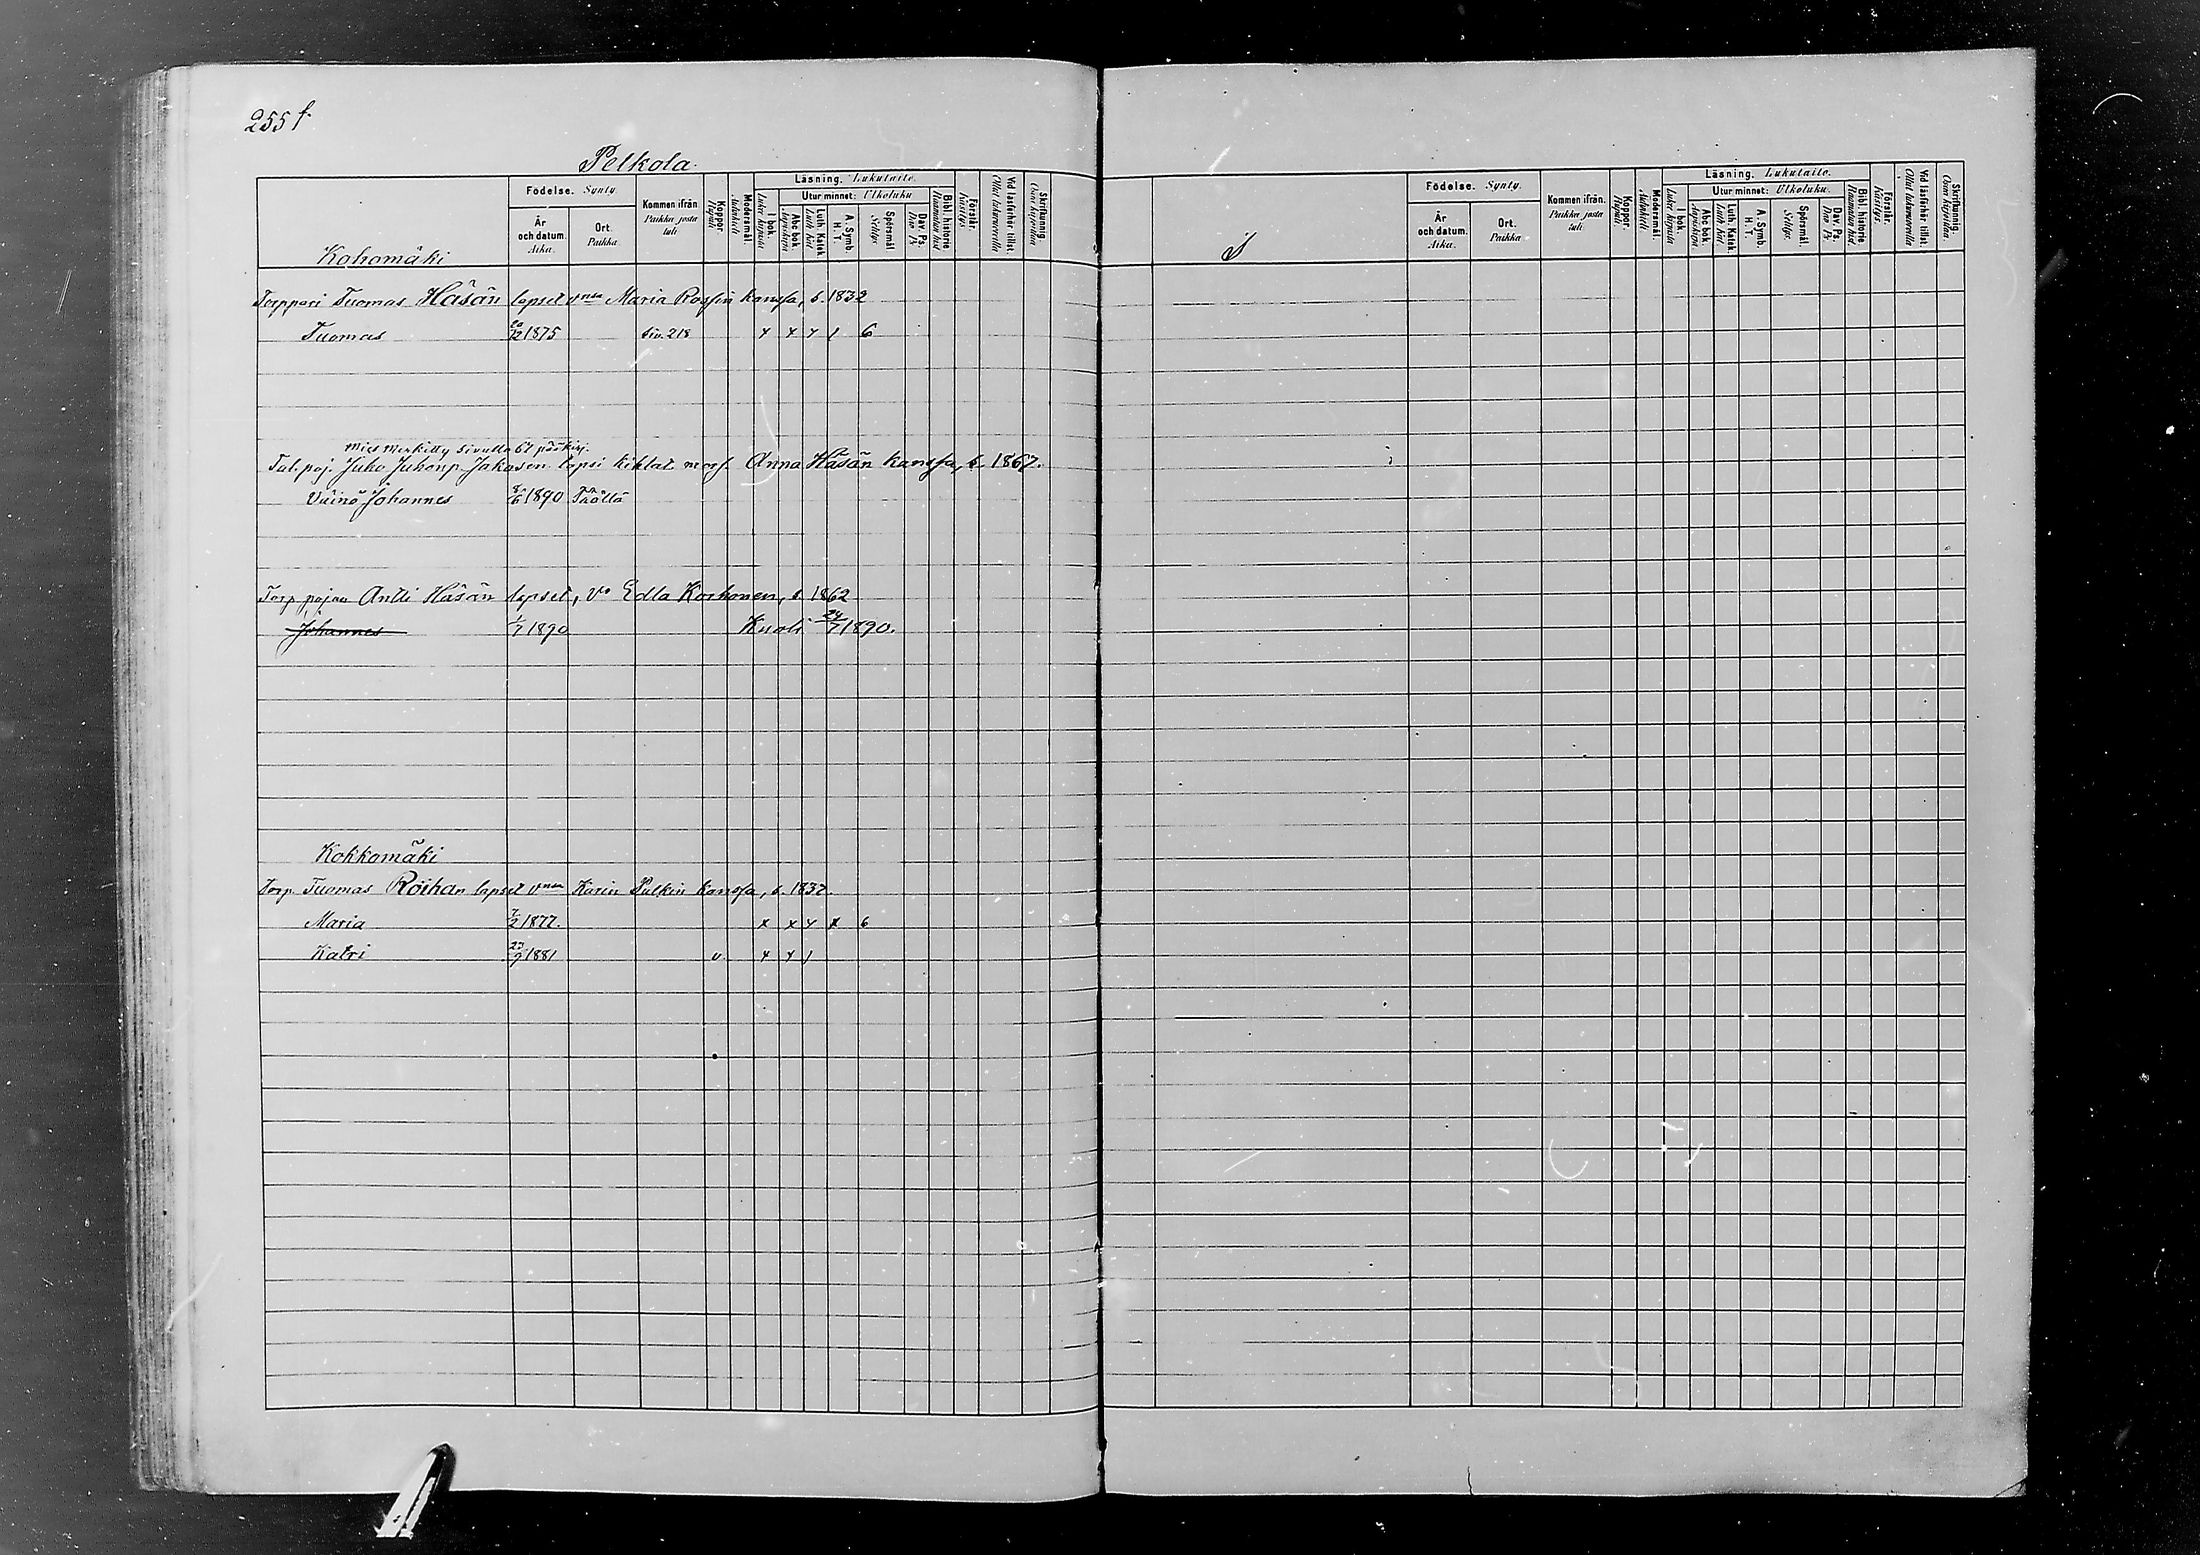 255 f.
Pelkola.
Födelse. Synty. Läsning. Lukutaito.
Utur minnet: Ulkoluku
År och datum. Aika. Ort. Paikka Kommen ifrån Paikka josta tuli Koppor. Rupuli Modersmål. Äidinkieli I bok. Lukee kirjasta Abc bok. Aapiskirja Luth. Katek. Luth. Kat. A. Symb. H. T. Spörsmål Selitys Dav. Ps. Dav. Ps. Bibl. historie Raamatun hist. Förstår. Käsitys Vid läsförhör tillst. Ollut lukuvuorolla Skrifkunnig. Osaa kirjoittaa
Kohomäki
Torppari Tuomas Häsän lapset vnsa Maria Rossin kanssa, s. 1832
Tuomas 20/12 1875 Siv. 218 x x x 1 6
Mies merkitty sivulla 67 pääkirj.
Tal. poj. Juho Juhonp. Jakosen lapsi kihlat mors. Anna Häsän kanssa, s. 1867.
Väinö Johannes 8/6 1890 Täällä
Torp. pojan Antti Häsän lapset, vo Edla Korhonen, s. 1862
Johannes 1/7 1890 Kuoli 24/7 1890.
Kokkomäki
Torp. Tuomas Roihan lapset vnsa Karin Pulkin kanssa, s. 1837.
Maria 7/2 1877. x x x x 6
Katri 23/9 1881 v. x x 1
Födelse. Synty. Läsning. Lukutaito.
Utur minnet: Ulkoluku.
År och datum. Aika. Ort. Paikka. Kommen ifrån. Paikka josta tuli. Koppor. Rupuli Modersmål. Äidinkieli I bok. Lukee kirjasta Abc bok. Aapiskirja Luth. Katek. Luth. Kat. A. Symb. H. T. Spörsmål. Selitys. Dav. Ps. Dav. Ps. Bibl. historie Raamatun hist. Förstår. Käsitys. Vid läsförhör tillst. Ollut lukuvuorolla Skrifkunnig. Osaa kirjoittaa